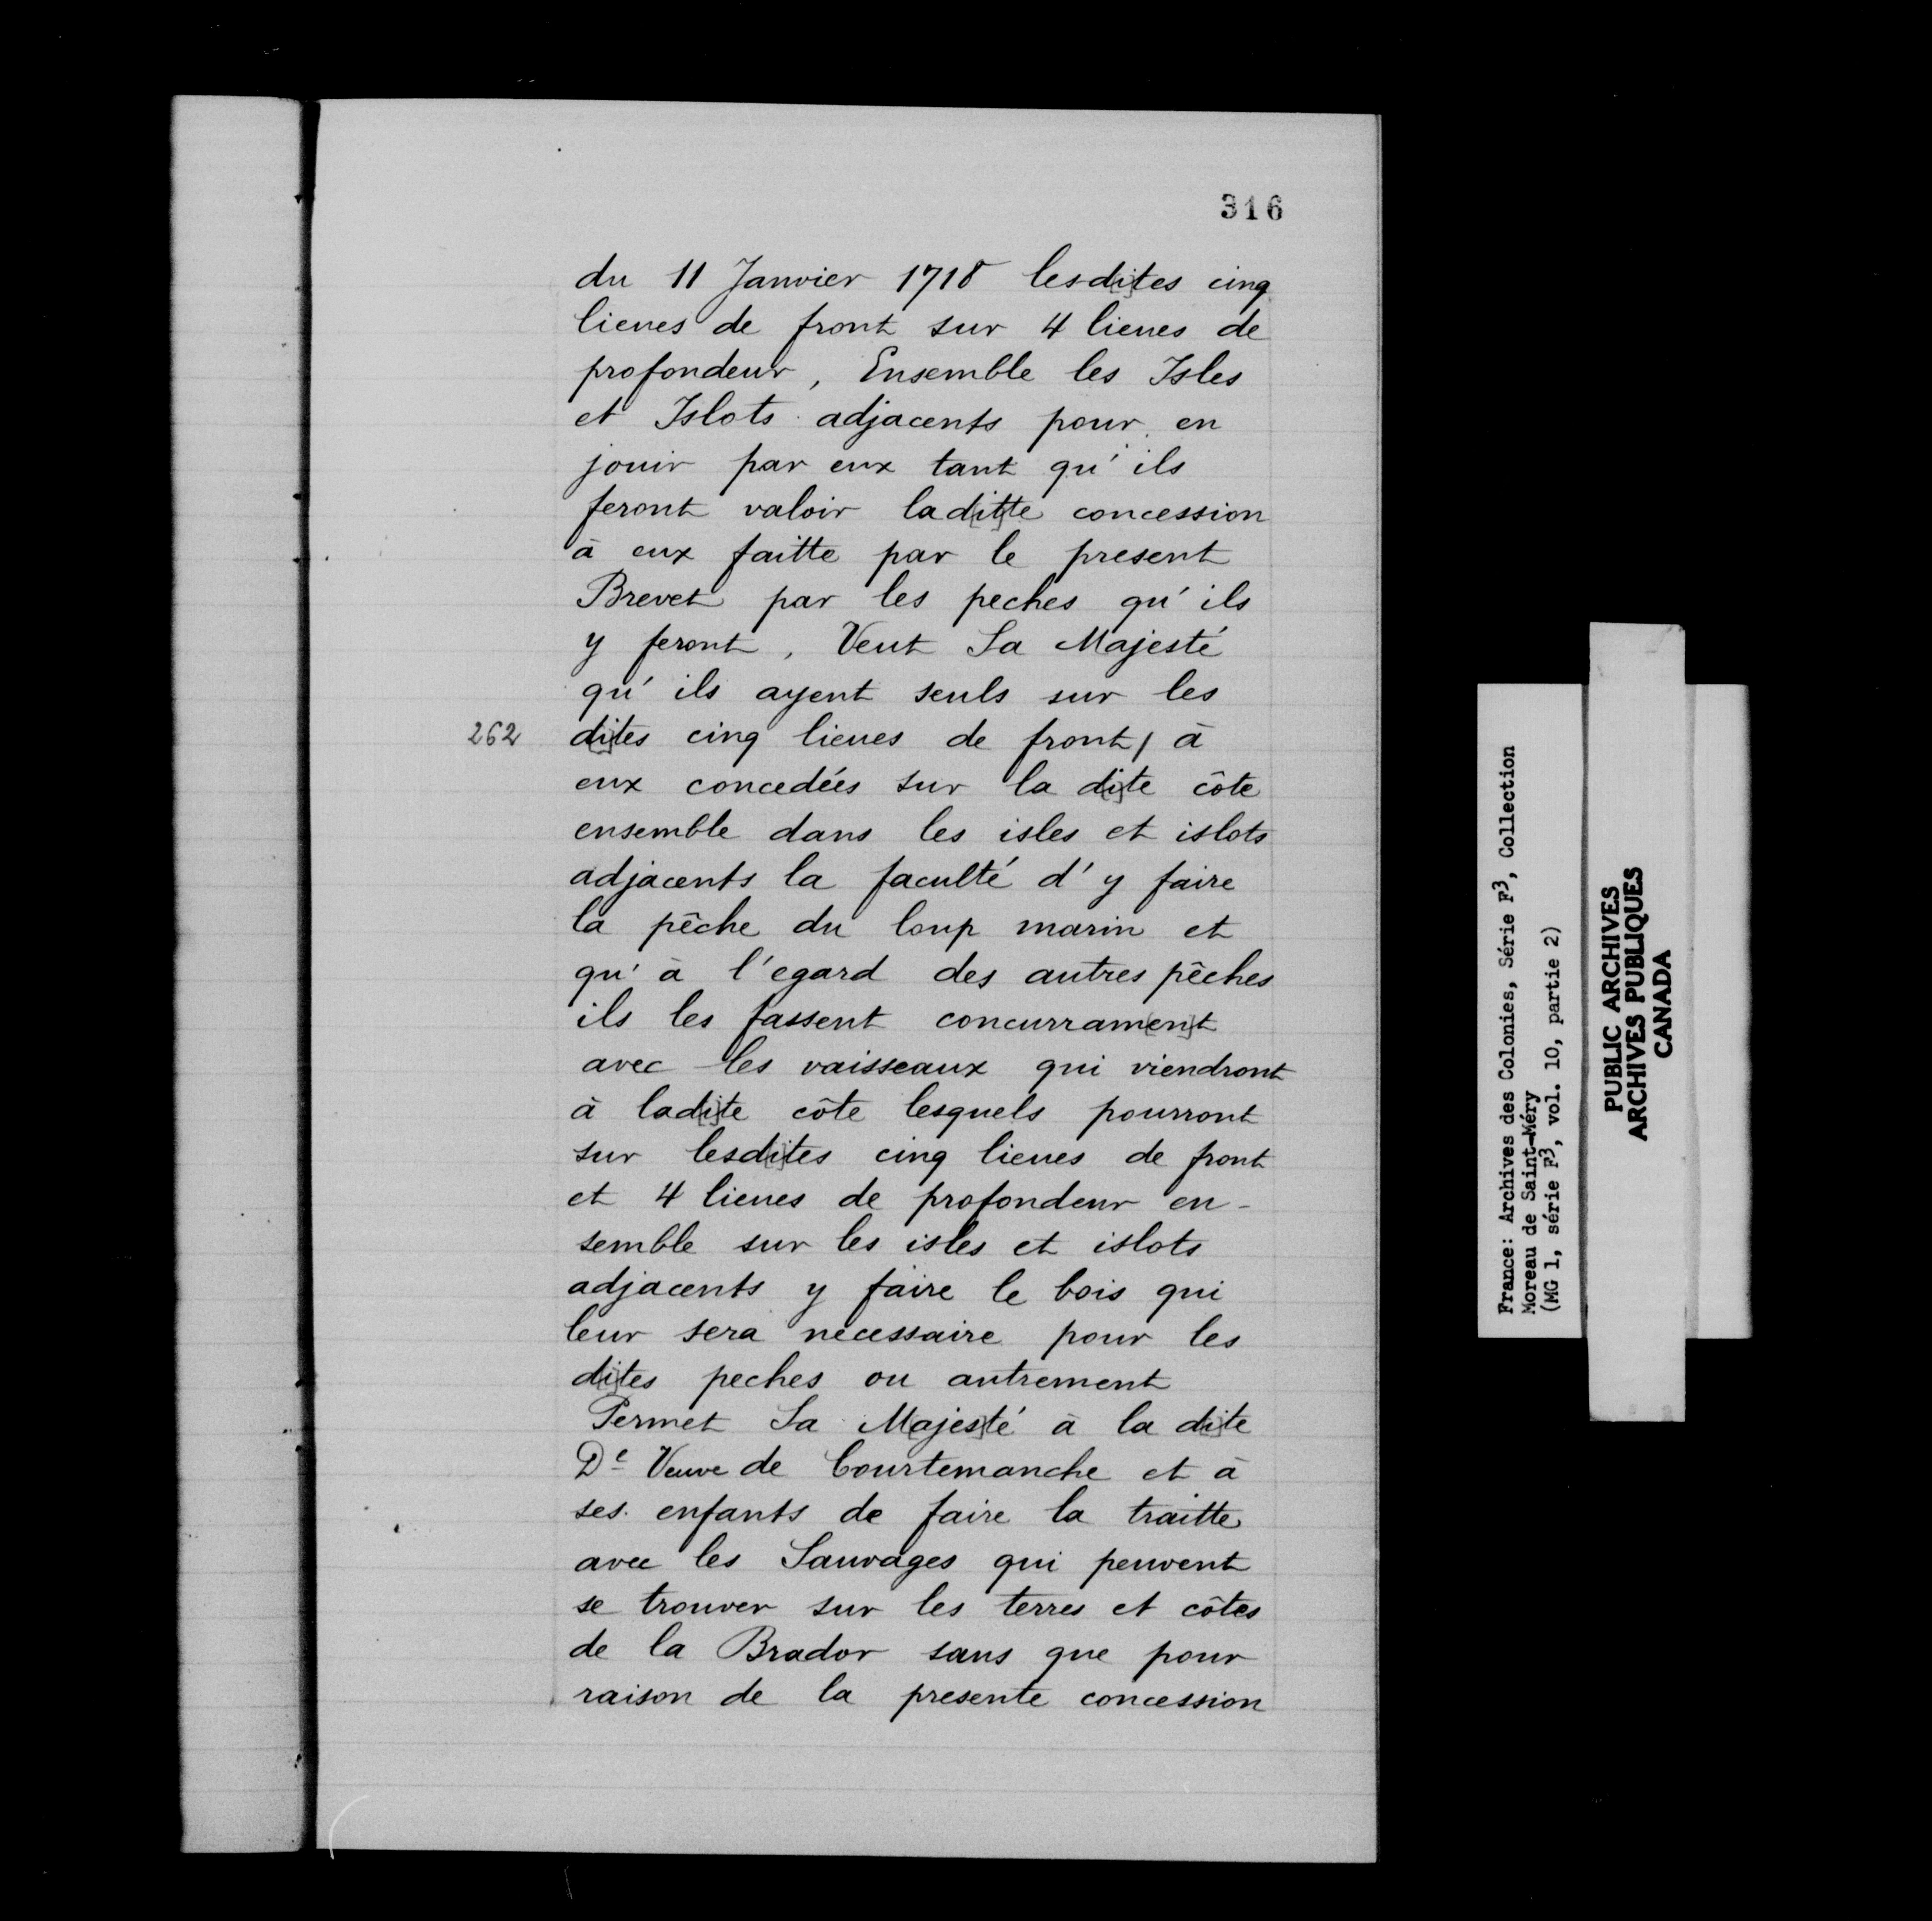 316
du 11 Janvier 1718 lesd[i]tes cinq
lieues de front sur 4 lieues de
profondeur, Ensemble les Isles
et Islots adjacents pour en
jouir par eux tant qu'ils
feront valoir lad[it]te concession
à eux faitte par le present
Brevet par les peches qu'ils
y feront, Veut Sa Majesté
qu'ils ayent seuls sur les
262 d[i]tes cinq lieues de front / à
eux concedées sur la d[i]te côte
ensemble dans les isles et islots
adjacents la faculté d'y faire
la pêche du loup marin et
qu'à l'egard des autres pêches
ils les fassent concurram[en]t
avec les vaisseaux qui viendront
à lad[i]te côte lesquels pourront
sur lesd[i]tes cinq lieues de front
et 4 lieues de profondeur en-
semble sur les isles et islots
adjacents y faire le bois qui
leur sera necessaire pour les
d[i]tes peches ou autrement
Permet Sa M[ajes]té à la d[i]te
De Veuve de Courtemanche et à
ses enfants de faire la traitte
avec les Sauvages qui peuvent
se trouver sur les terres et côtes
de la Brador sans que pour
raison de la presente concession
France: Archives des Colonies, Série F3, Collection
Moreau de Saint-Méry
(MG 1, série F3, vol. 10, partie 2)
PUBLIC ARCHIVES
ARCHIVES PUBLIQUES
CANADA